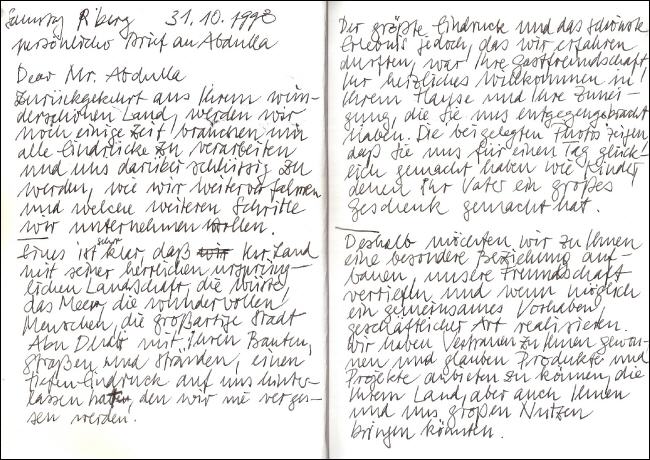 Samstag Riberg 31.10.1998
persönlicher Brief an Abdulla
Dear Mr. Abdulla
Zurückgekehrt aus Ihrem wun-
derschönen Land, werden wir
noch einige Zeit brauchen um
alle Eindrücke zu verarbeiten
und uns darüber schlüssig zu
werden, wie wir weiter verfahren
und welche weiteren Schritte
wir unternehmen wollen.
Eines ist sehr klar, daß Ihr Land
mit seiner herrlichen ursprüng-
lichen Landschaft, die Wüste,
das Meer, die wundervollen
Menschen, die großartige Stadt
Abu Dhabi mit ihren Bauten,
Straßen und Stränden, einen
tiefen Eindruck auf uns hinter-
lassen hat, den wir nie verges-
sen werden.
Der größte Eindruck und das schönste
Erlebnis jedoch, das wir erfahren
durften, war Ihre Gastfreundschaft,
Ihr herzliches Willkommen in
Ihrem Hause und Ihre Zunei-
gung, die Sie uns entgegengebracht
haben. Die beigelegten Photos zeigen,
daß Sie uns für einen Tag glück-
lich gemacht haben wie Kinder,
denen ihr Vater ein großes
Geschenk gemacht hat.
Deshalb möchten wir zu Ihnen
eine besondere Beziehung auf-
bauen, unsere Freundschaft
vertiefen und wenn möglich
ein gemeinsames Vorhaben,
geschäftlicher Art realisieren.
Wir haben Vertrauen zu Ihnen gewon-
nen und glauben Produkte und
Projekte anbieten zu können, die
Ihrem Land, aber auch Ihnen
und uns großen Nutzen
bringen könnten.